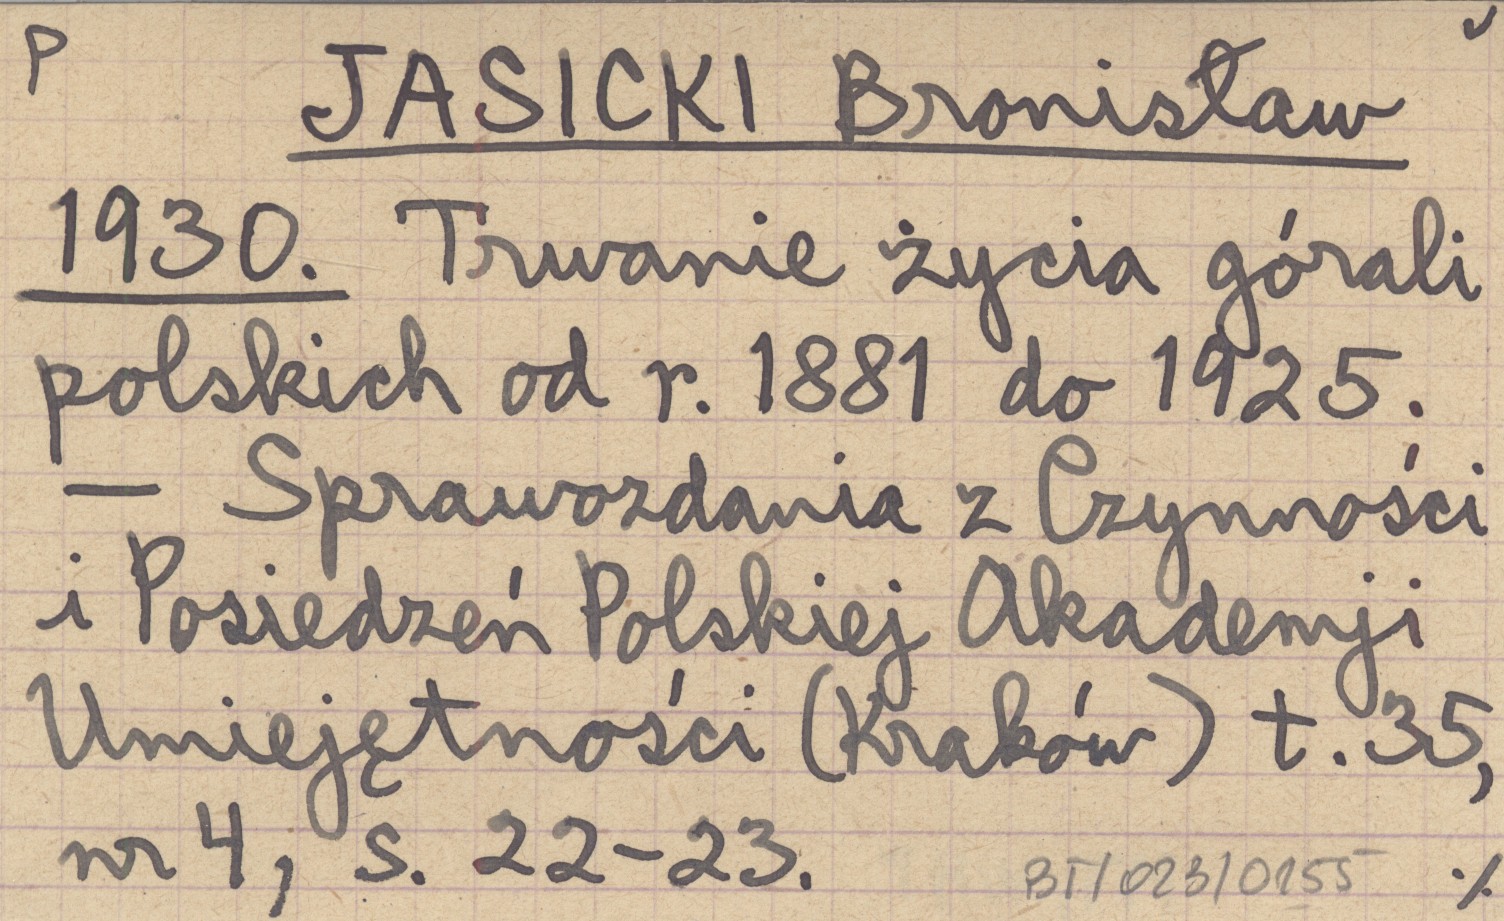 P
JASICKI Bronisław
1930. Trwanie życia górali
polskich od r. 1881 do 1925.
— Sprawozdania z Czynności
i Posiedzeń Polskiej Akademji
Umiejętności (Kraków) t. 35,
nr 4, s. 22-23.
BI/023/0155 ./.